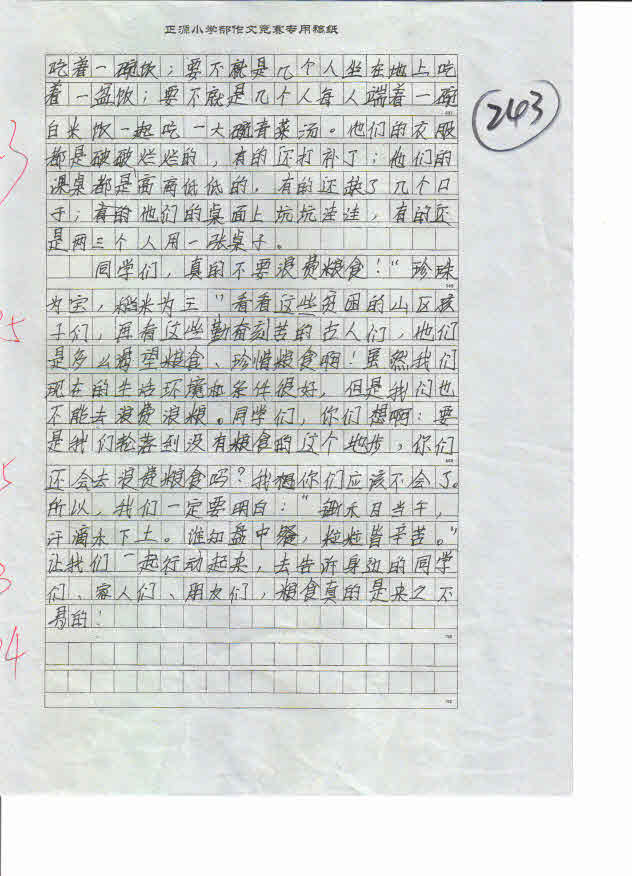 正源小学部作文竞赛专用稿纸
243
吃着一碗饭；要不就是几个人坐在地上吃
着一盆饭；要不就是几个人每人端着一碗
白米饭一起吃一大碗青菜汤。他们的衣服
都是破破烂烂的，有的还打补丁；他们的
课桌都是高高低低的，有的还缺了几个口
子；有的他们的桌面上坑坑洼洼，有的还
是两三个人用一张桌子。
同学们，真的不要浪费粮食！“珍珠
为宝，稻米为王”看看这些贫困的山区孩
子们，再看这些勤奋刻苦的古人们，他们
是多么渴望粮食、珍惜粮食啊！虽然我们
现在的生活环境和条件很好，但是我们也
不能去浪费浪粮。同学们，你们想啊：要
是我们轮落到没有粮食的这个地步，你们
还会去浪费粮食吗？我想你们应该不会了。
所以，我们一定要明白：“锄禾日当午，
汗滴禾下土。谁知盘中餐，粒粒皆辛苦。”
让我们一起行动起来，去告诉身边的同学
们、家人们、朋友们，粮食真的是来之不
易的！